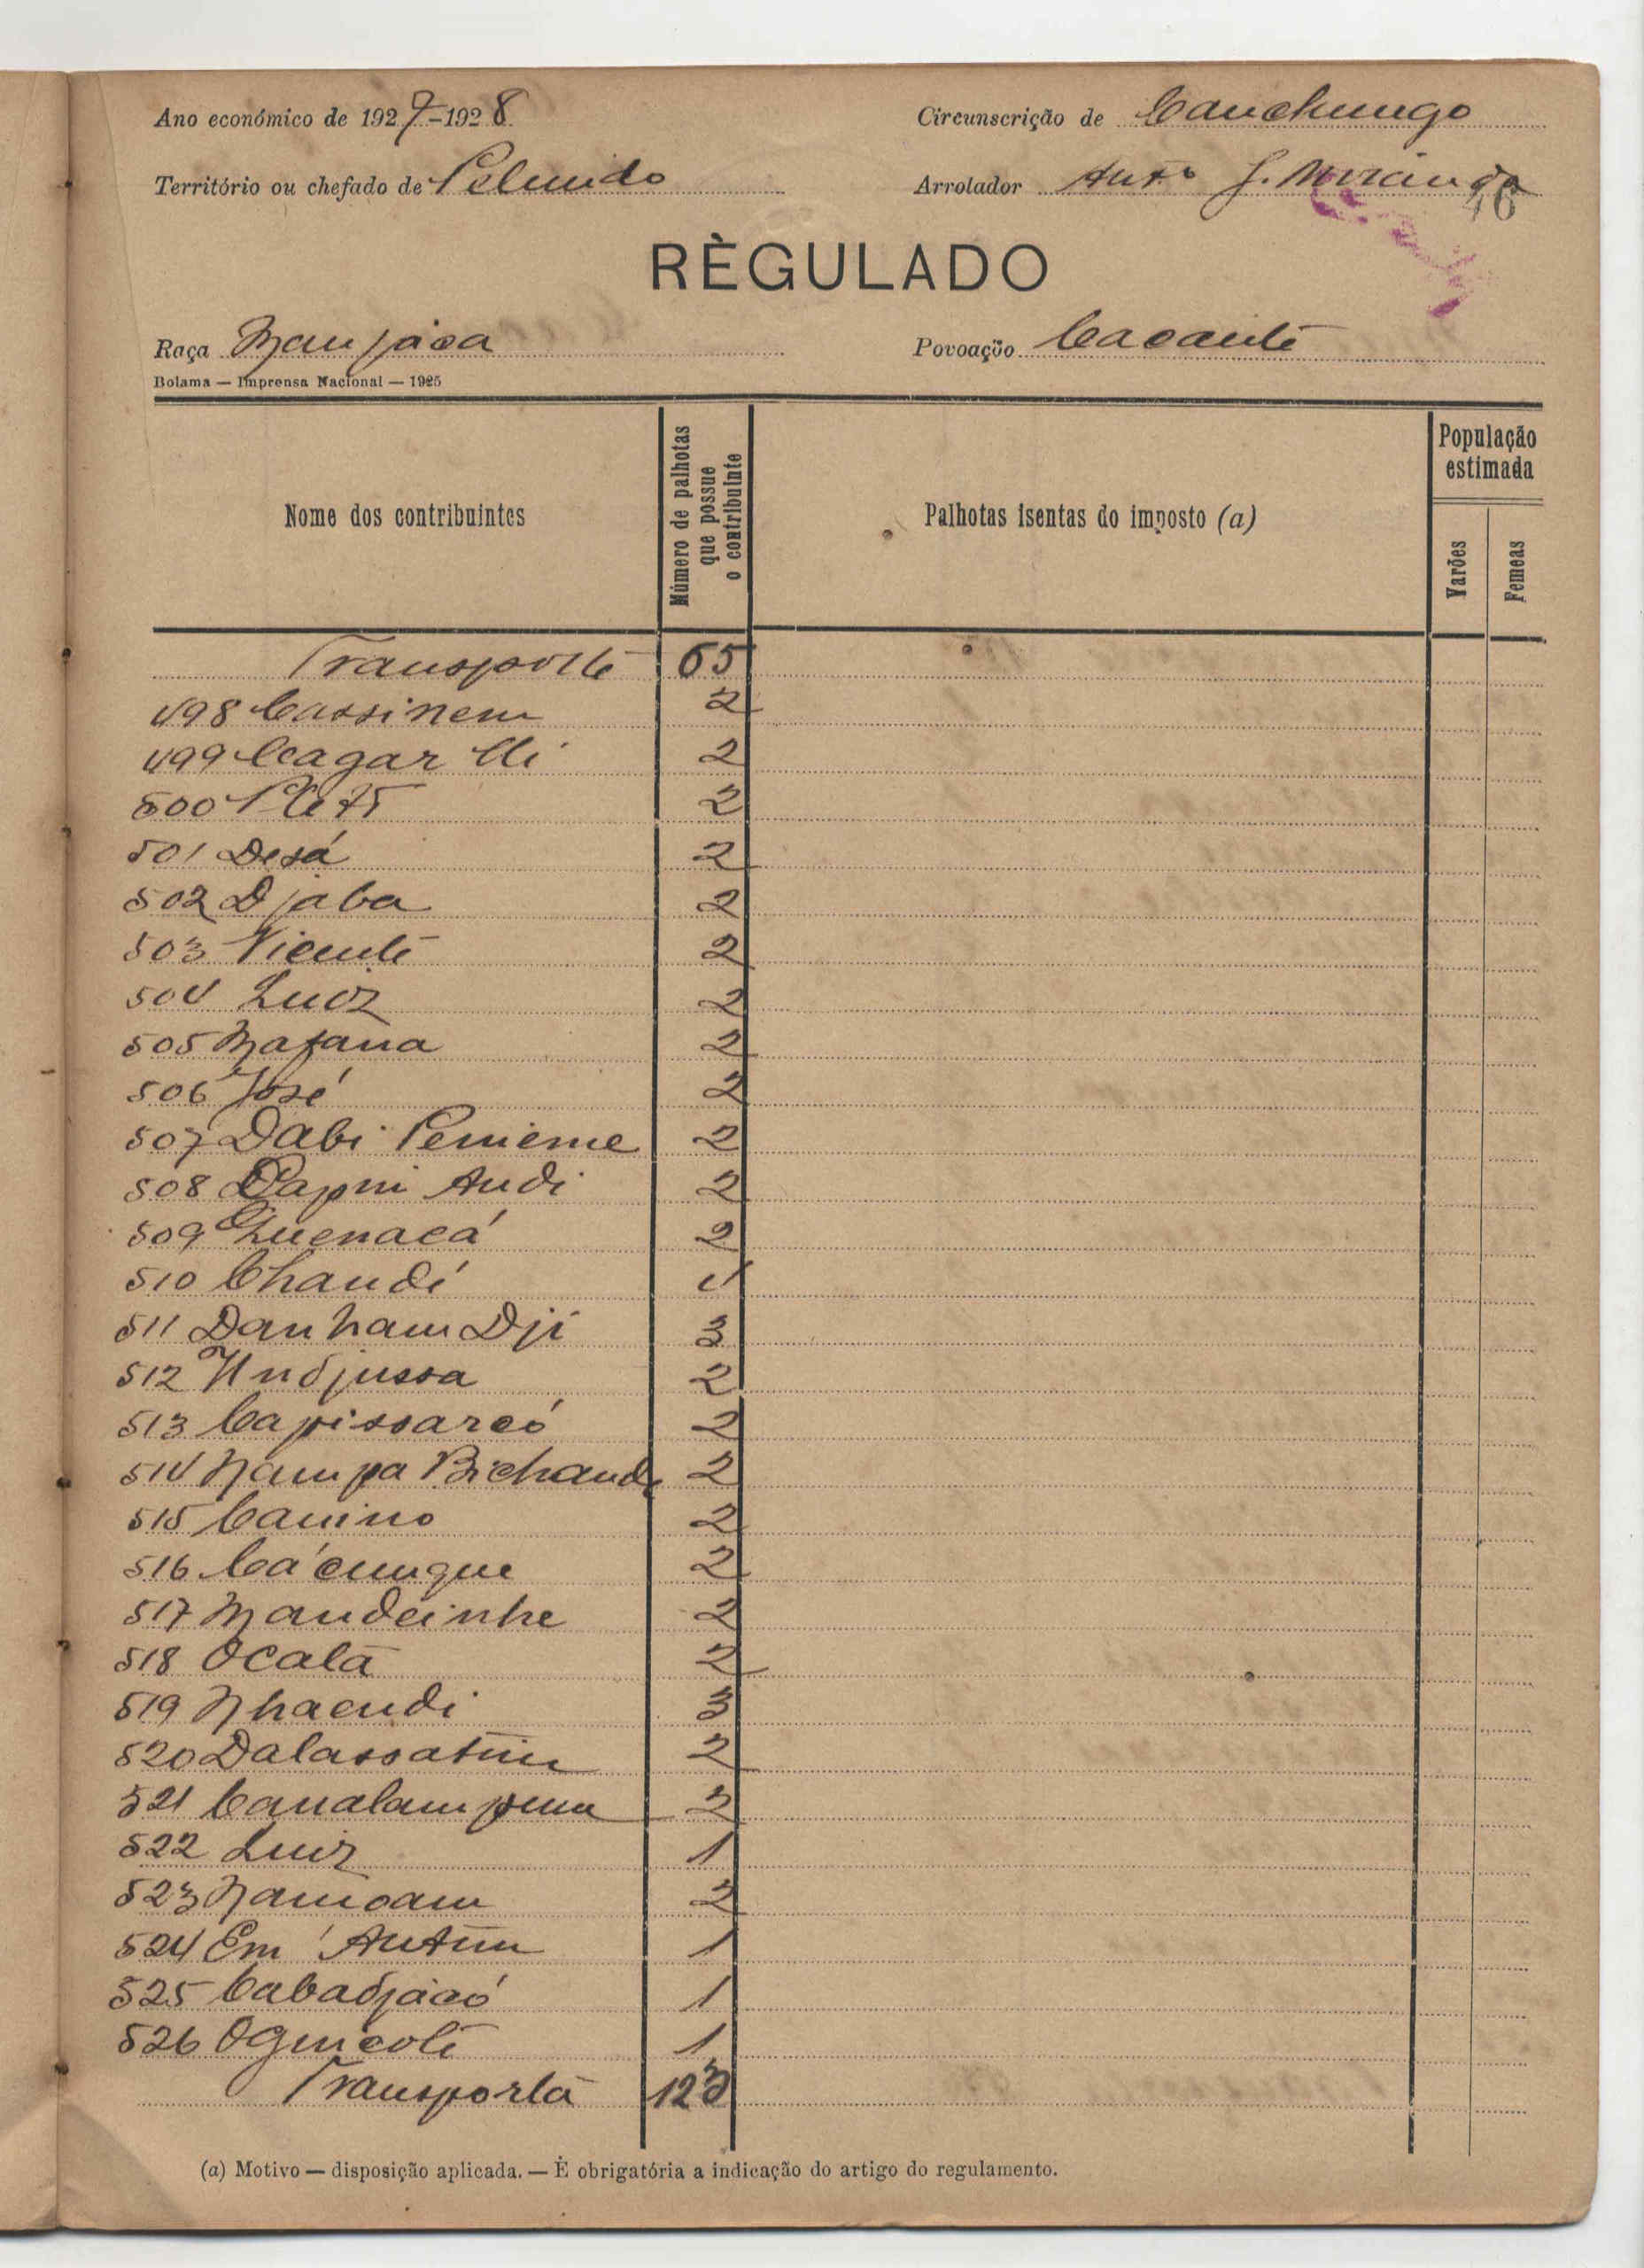 Ano económico de 1927-1928 Circunscrição de Canchungo
Território ou chefado de Pelundo Arrolador Antº J. Miranda
46
RÈGULADO
Raça Manjaca Povoação Cacante
Bolama — Imprensa Nacional — 1925
Nome dos contribuintes
Número de palhotas que possue o contribuinte
Palhotas isentas do imposto (a)
População estimada
Varões
Femeas
Transporte 65
498 Cassinem 2
499 Cagar 2
500 2
501 Desá 2
502 Djaba 2
503 Vicente 2
504 Luiz 2
505 Mafana 2
506 José 2
507 Dabi Penieme 2
508 Dapni Andi 2
509 Quenacá 2
510 Chandí 1
511 Danham Dji 3
512 Undjussa 2
513 Capissarcó 2
514 Nampa Bichande 2
515 Canino 2
516 Cácungue 2
517 Mandeinhe 2
518 Ocala 2
519 Nhaendi 3
520 Dalassatim 2
521 Canalam 2
522 Luiz 1
523 Namoam 2
524 Em Antim 1
525 Cabadjacó 1
526 Oguicote 1
Transporta 123
(a) Motivo — disposição aplicada. — È obrigatória a indicação do artigo do regulamento.